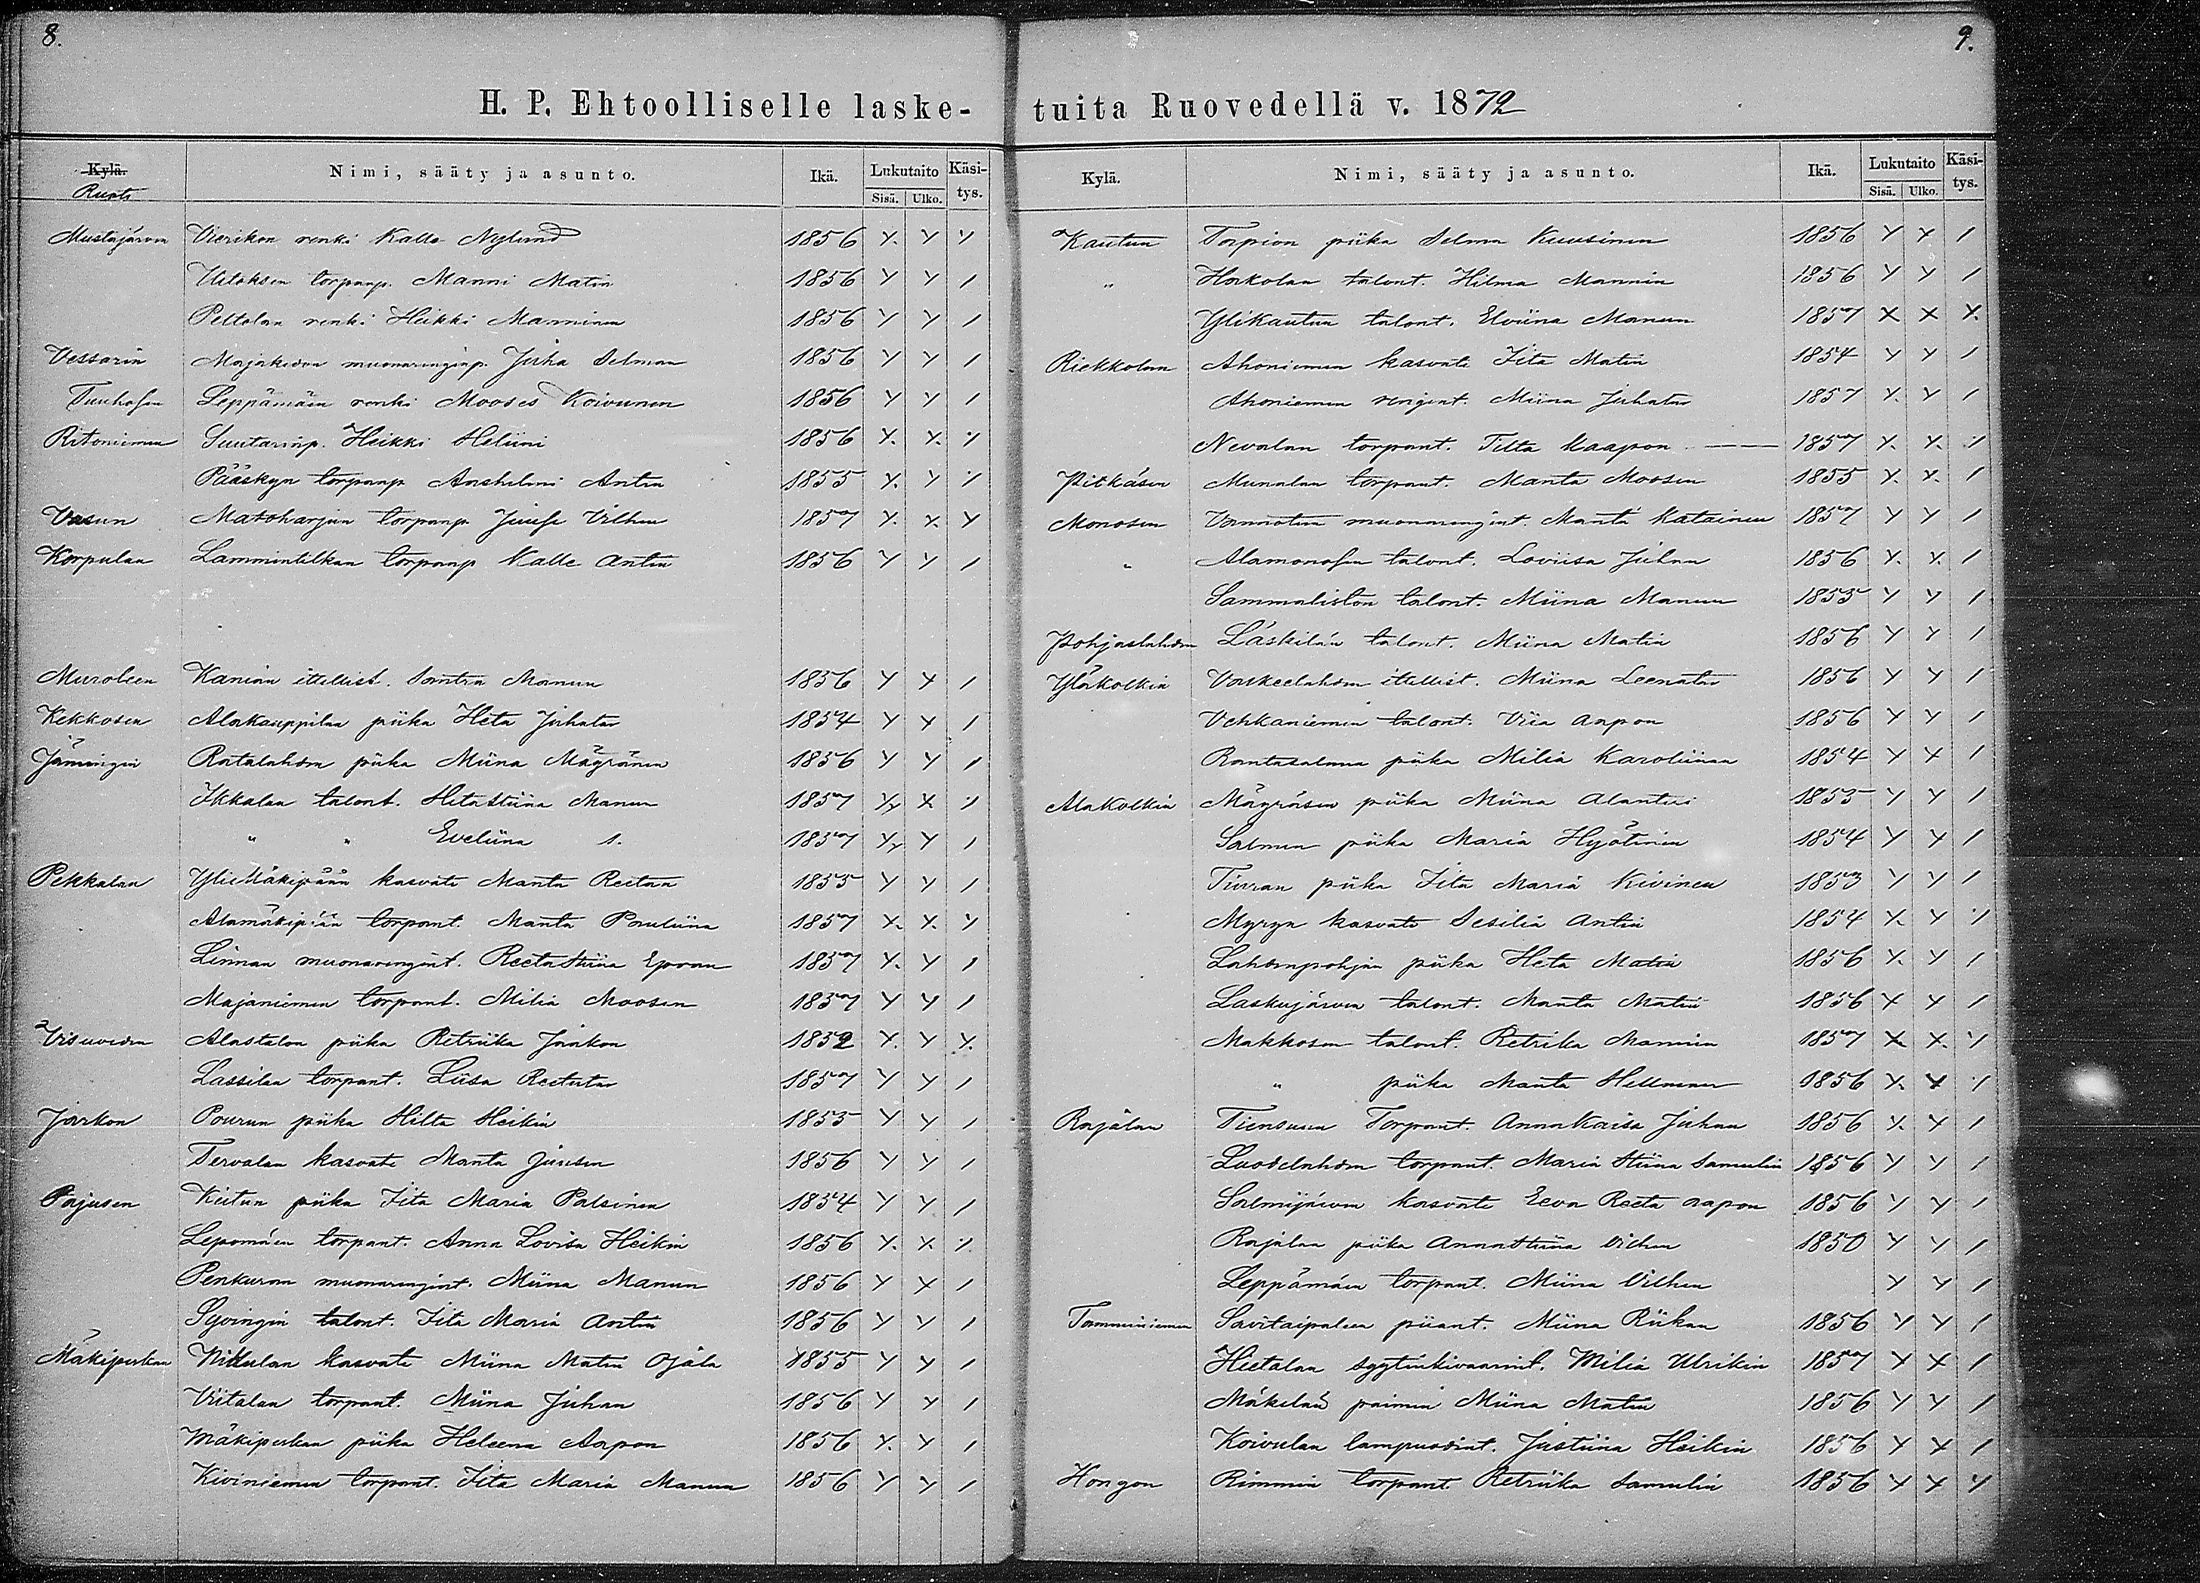 8.
H. P. Ehtoolliselle laske-
Kylä. Nimi, sääty ja asunto. Ikä. Lukutaito Käsi-
Ruoti Sisä. Ulko. tys.
Mustajärven Vierikon renki Kalle Nylund 1856
torpanp. Manni Matin 1856
Peltolan renki Heikki Manninen 1856
Vessarin Majakedon muonarenginp. Juha Selman 1856
Tuuhosen Leppämäen renki Mooses Koivunen 1856
Ritoniemen Suutarinp. Heikki Heliini 1856
Pääskyn torpanp Anshelmi Antin 1855
Vasun Matoharjun torpanp Juuse Vilhen 1857
Korpulan Lammintilkan torpanp Kalle Antin 1856
Muroleen Kanian itellist. Santra Manun 1856
Kekkosen Alakauppilan piika Heta Juhatar 1854
Jämingin Ratalahden piika Miina Mägränen 1856
Ikkalan talont. Hetastiina Manun 1857
" " Eveliina s. 1857
Pekkalan YliMäkipään kasvati Manta Reetan 1855
Alamäkipään torpant. Manta Pauliina 1857
Linnan muonarengint. Reetastiina Epran 1857
Majaniemen torpant. Milia Moosen 1857
Visuveden Alastalon piika Retriika Jaakon 1852
Lassilan torpant. Liisa Reetatar 1857
Jarkon Pourun piika Hilta Heikin 1855
Tervalan kasvati Manta Juusen 1856
Pajusen Kiitun piika Iita Maria Palsinen 1854
Lepomäen torpant. Anna Lovisa Heikin 1856
Penkuran muonarengint. Miina Manun 1856
Syvingin talont. Iita Maria Antin 1856
Mäkipirkan Nikulan kasvati Miina Matin Ojala 1855
Viitalan torpant. Miina Juhan 1856
Mäkipirkan piika Heleena Aapon 1856
Kiviniemen torpant. Iita Maria Manun 1856
9.
tuita Ruovedellä v. 1872
Kylä. Nimi, sääty ja asunto. Ikä. Lukutaito Käsi-
Sisä. Ulko. tys.
Kautun Torpion piika Selma Kuusinen 1856
" Horkolan talont. Hilma Mannin 1856
Ylikautun talont. Elviina Manun 1857
Riekkolan Ahoniemen kasvati Iita Matin 1854
Ahoniemen rengint. Miina Juhatar 1857
Nevalan torpant. Tilta Kaapon 1857
Pitkäsen Munalan torpant. Manta Moosen 1855
Monosen muonarengint. Manta Katainen 1857
" Alamonosen talont. Loviisa Juhan 1856
Sammaliston talont. Miina Manun 1855
Pohjaslahden Läskilän talont. Miina Matin 1856
Yläkolkin Vaskeelahden itellist. Miina Leenatar 1856
Vehkaniemin talont. Viia Aapon 1856
Rantasalmen piika Milia Karoliinan 1854
Alakolkin Mägräsen piika Miina Alantiri 1855
Salmen piika Maria Hyötinin 1854
Tiuran piika Iita Maria Kivinen 1853
Myryn kasvati Sesilia Antin 1854
Lahdenpohjan piika Heta Matin 1856
Laskujärven talont. Manta Matin 1856
Makkosen talont. Retrika Mannin 1857
" piika Manta Hellman 1856
Rajalan Tiensuun Torpant. AnnaKaisa Juhan 1856
Luodelahden torpant. Maria Stiina Samulin 1856
Salmijärven kasvati Eeva Reeta Aapon 1856
Rajalan piika Annastiina Vilhen 1850
Leppämäen torpant. Miina Vilhen
Tamminiemen Savitaipaleen piiant. Miina Riikan 1856
Hietalan syytinkivaarint. Milia Ulrikin 1857
Mäkelän paimen Miina Matin 1856
Koivulan lampuodint. Justiina Heikin 1856
Hongon Rimmin torpant Retriika Samulin 1856